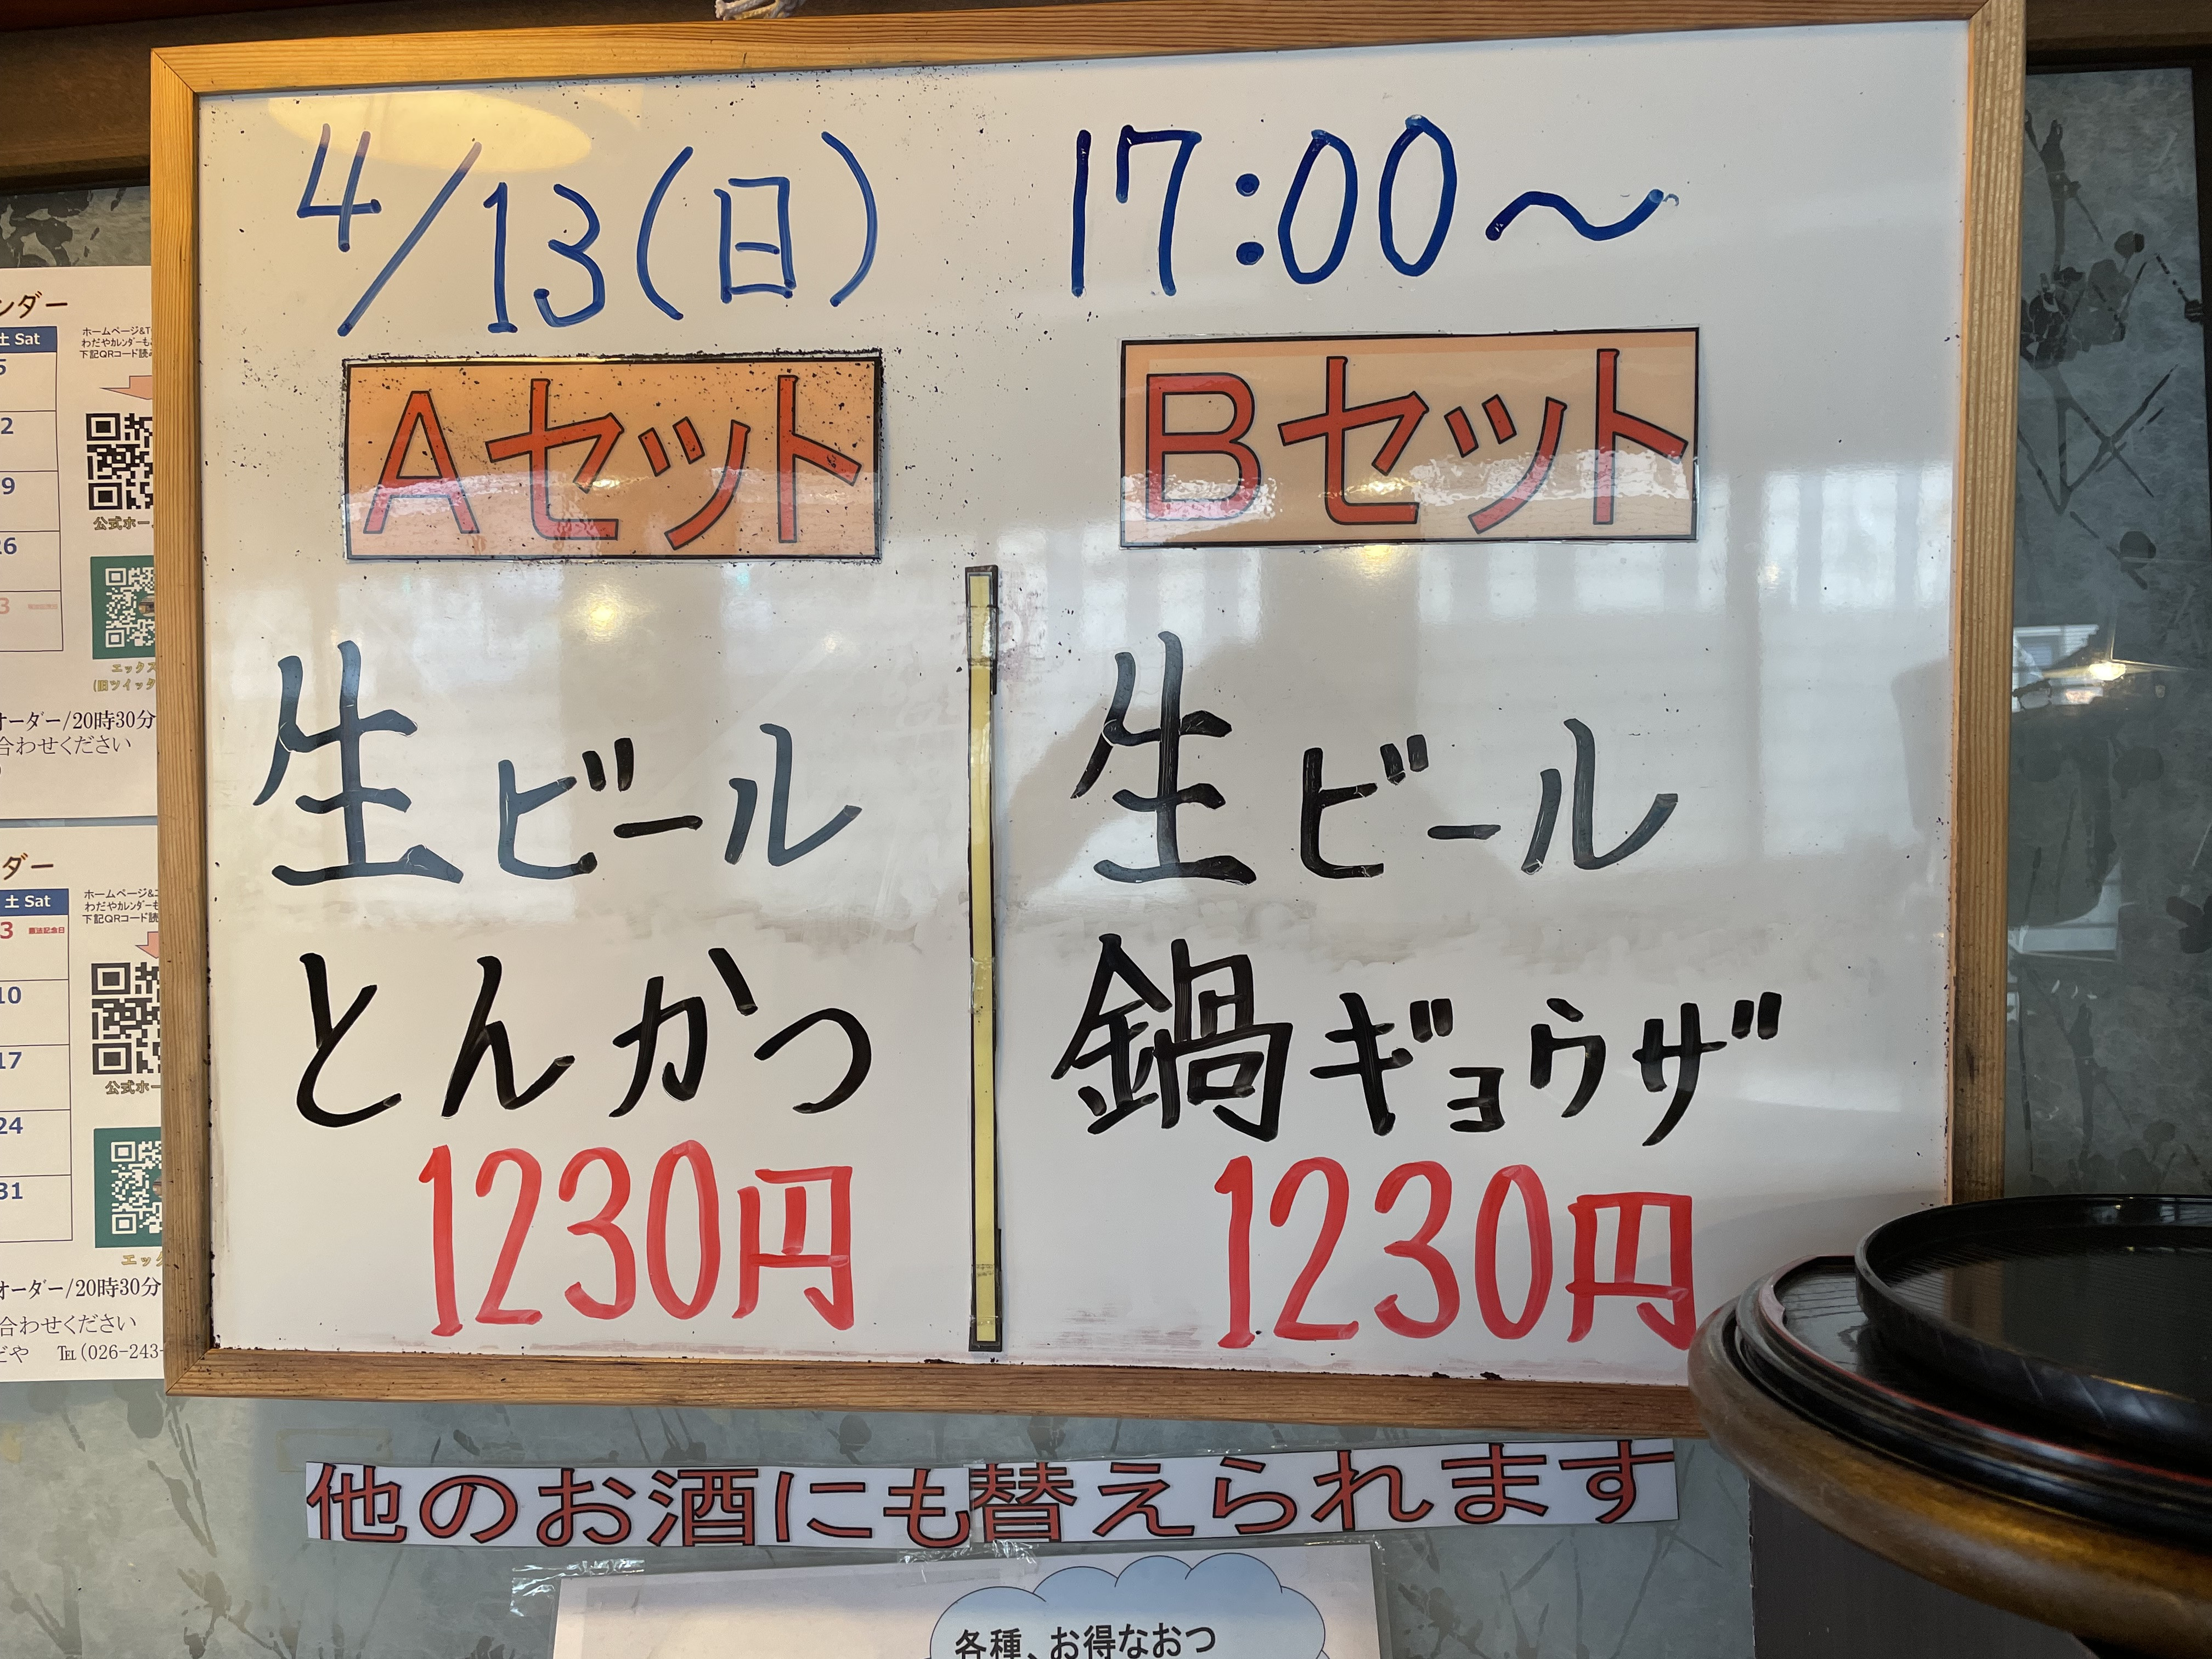 4/13(日) 17:00～
Aセット
生ビール
とんかつ
1230円
Bセット
生ビール
鍋ギョウザ
1230円
他のお酒にも替えられます
各種、お得なおつ
ンダー
土 Sat
ホームページ&T
わだやカレンダーも
下記QRコード読み
5
2
9
26
3
公式ホー
エックス
(旧ツイッタ
オーダー/20時30分
合わせください
ダー
土 Sat
ホームページ&エ
わだやカレンダーも
下記QRコード読
3 憲法記念日
10
17
24
31
公式ホー
エック
オーダー/20時30分
合わせください
だや ℡(026-243-